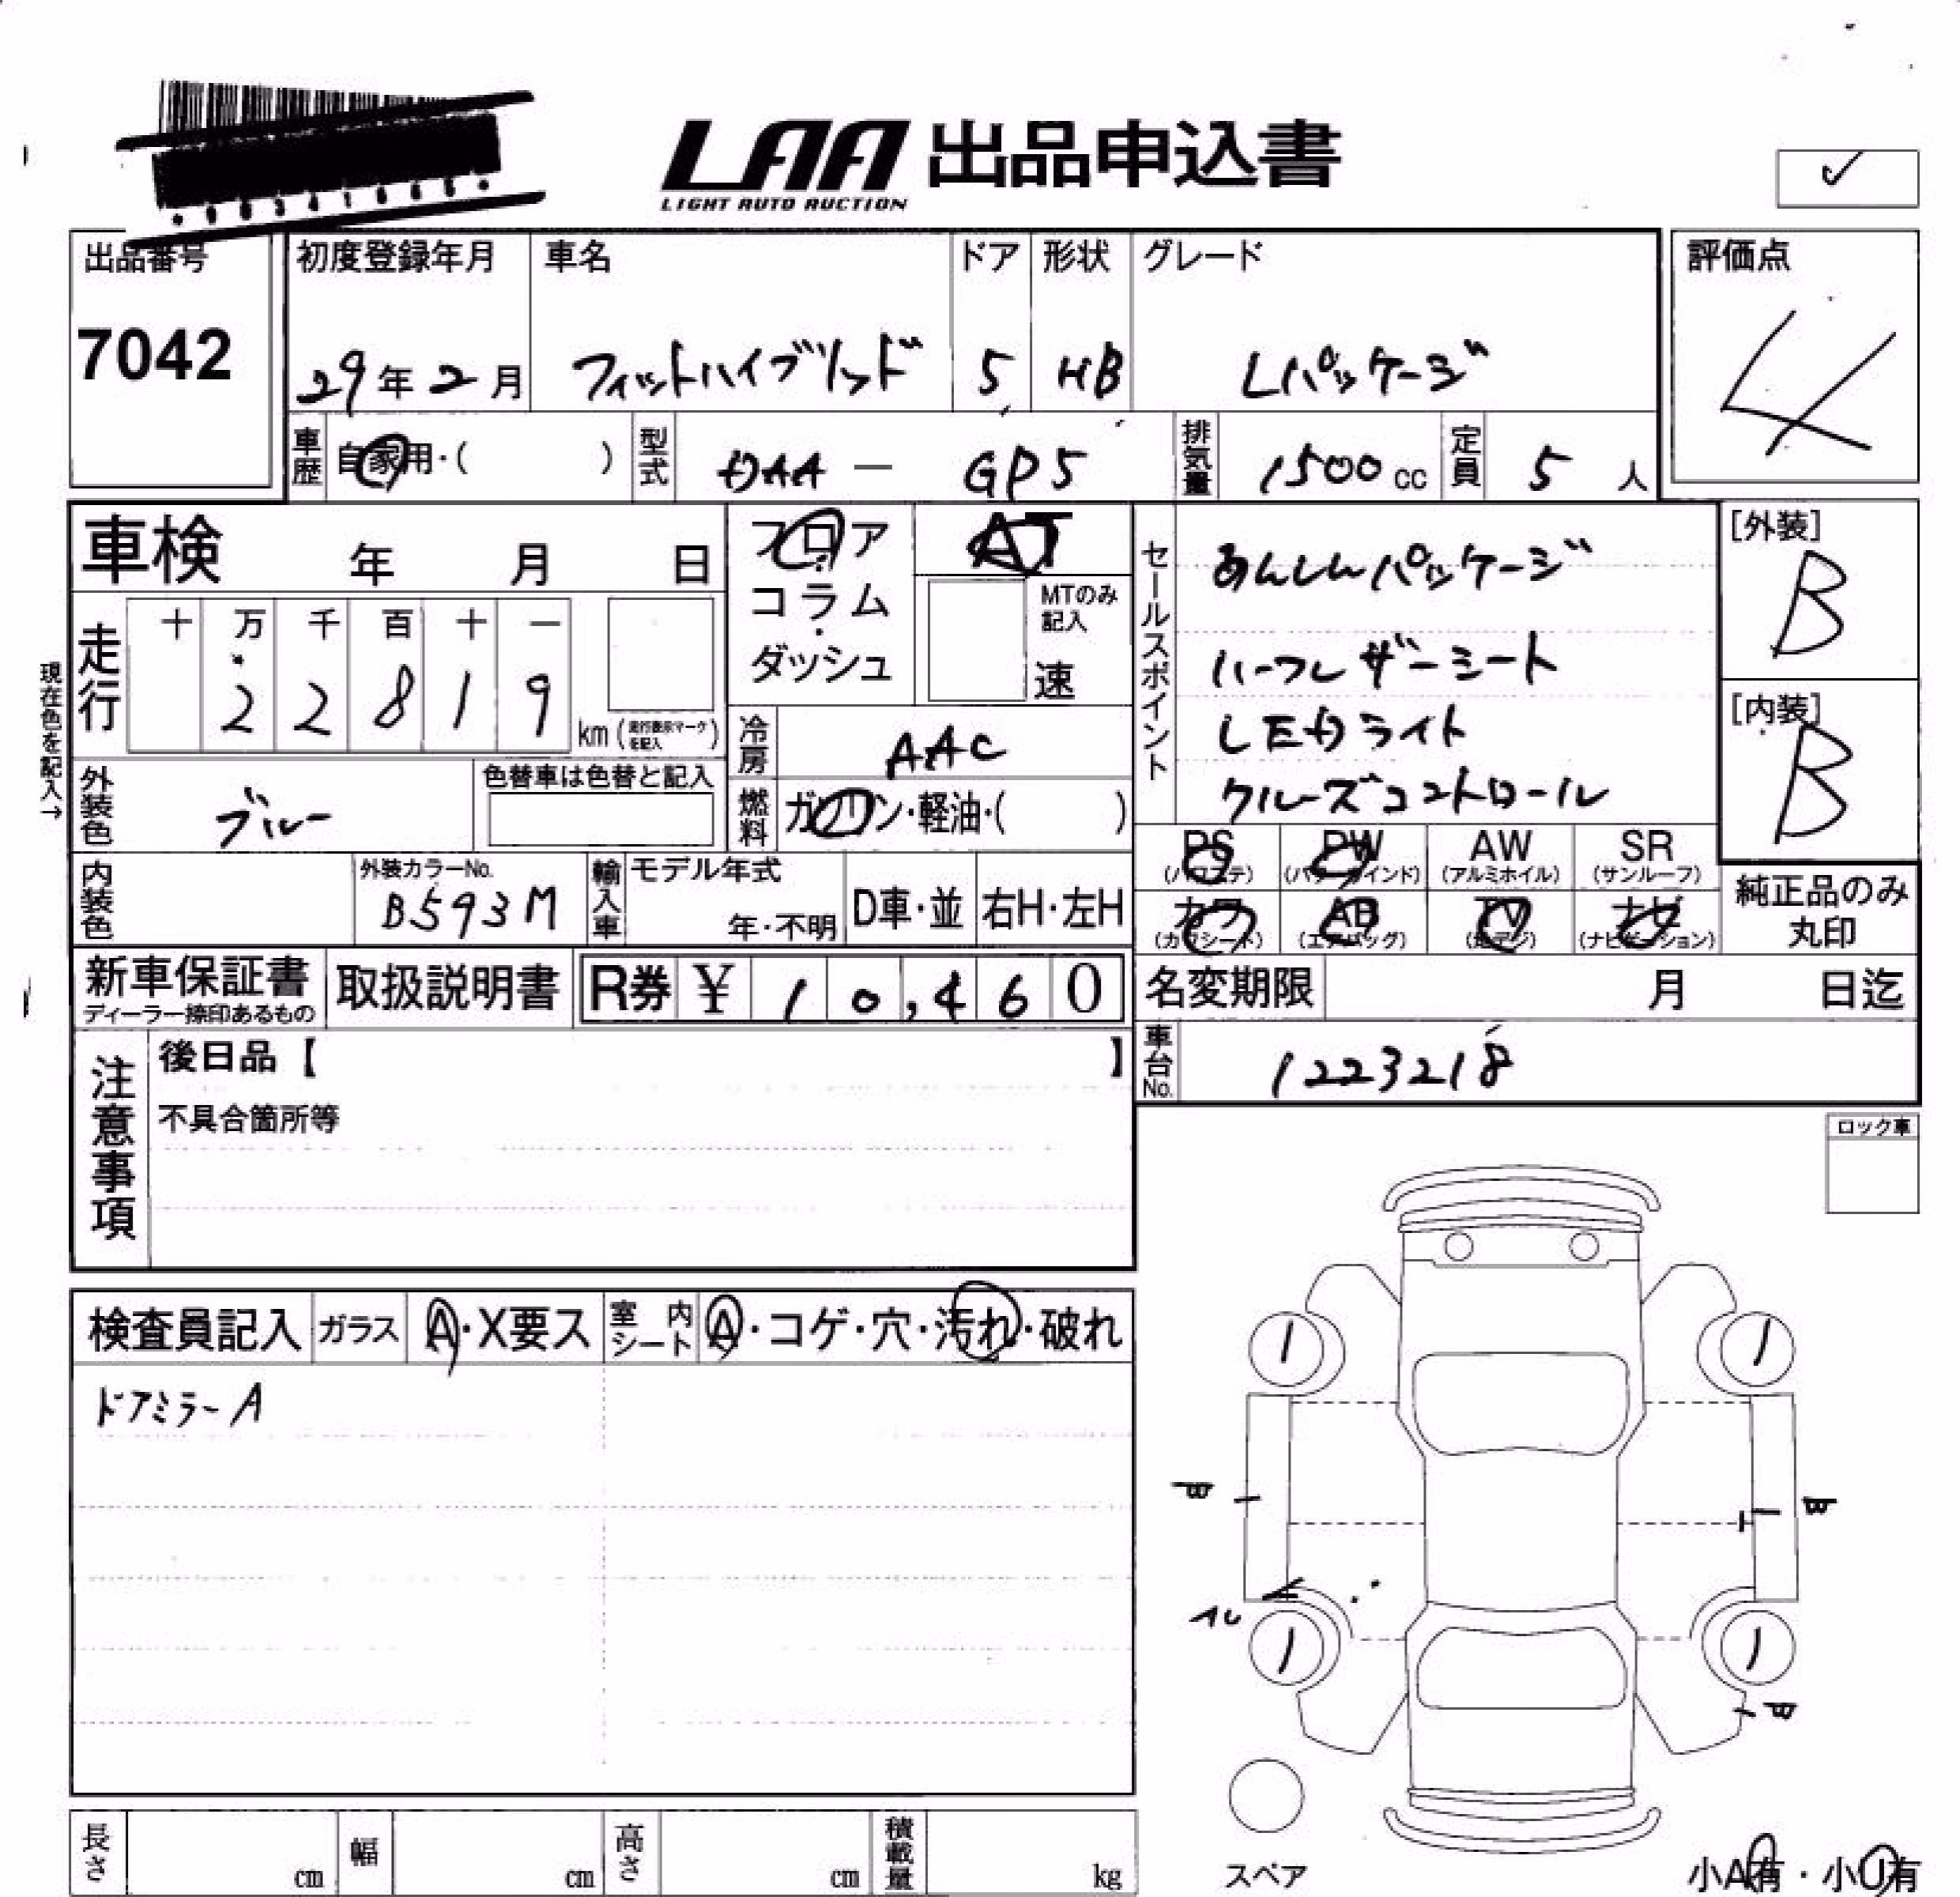 LAA 出品申込書
LIGHT AUTO AUCTION
✓
出品番号
7042
初度登録年月
29年2月
車名
フィットハイブリッド
ドア
5
形状
HB
グレード
Lパッケージ
評価点
4
車歴
自家用・( )
型式
DAA — GP5
排気量
1500cc
定員
5人
車検 年 月 日
走行
十 万 千 百 十 一
2 2 8 1 9 km (走行表示マークを記入)
現在色を記入→
フロア
・
コラム
・
ダッシュ
AT
MTのみ
記入
速
セールスポイント
あんしんパッケージ
ハーフレザーシート
LEDライト
クルーズコントロール
[外装]
B
[内装]
B
外装色
ブルー
色替車は色替と記入
冷房
AAC
燃料
ガソリン・軽油・( )
内装色
外装カラーNo.
B593M
輸入車
モデル年式
年・不明
D車・並
右H・左H
PS
(パワステ)
PW
(パワーウインド)
AW
(アルミホイル)
SR
(サンルーフ)
カワ
(カワシート)
AB
(エアバッグ)
TV
(地デジ)
ナビ
(ナビゲーション)
純正品のみ
丸印
新車保証書
ディーラー捺印あるもの
取扱説明書
R券 ¥ 10,460
名変期限 月 日迄
車台No.
1223218
注意事項
後日品【 】
不具合箇所等
ロック車
検査員記入
ガラス
A・X要ス
室内シート
A・コゲ・穴・汚れ・破れ
ドアミラーA
長さ
cm
幅
cm
高さ
cm
積載量
kg
スペア
小A有・小U有